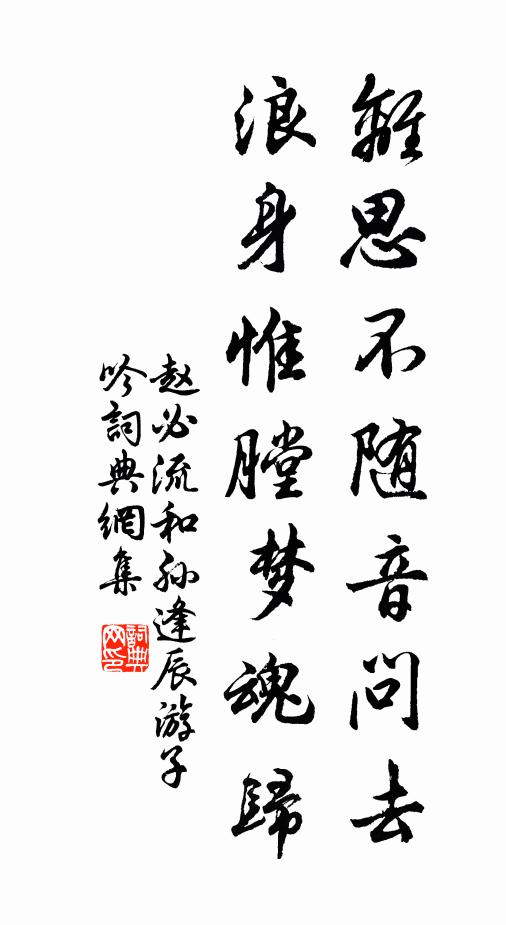 離思不随音問去
浪身惟膛梦魂歸
赵必流和孙逢辰游子
吟詞典網集
詞典網印